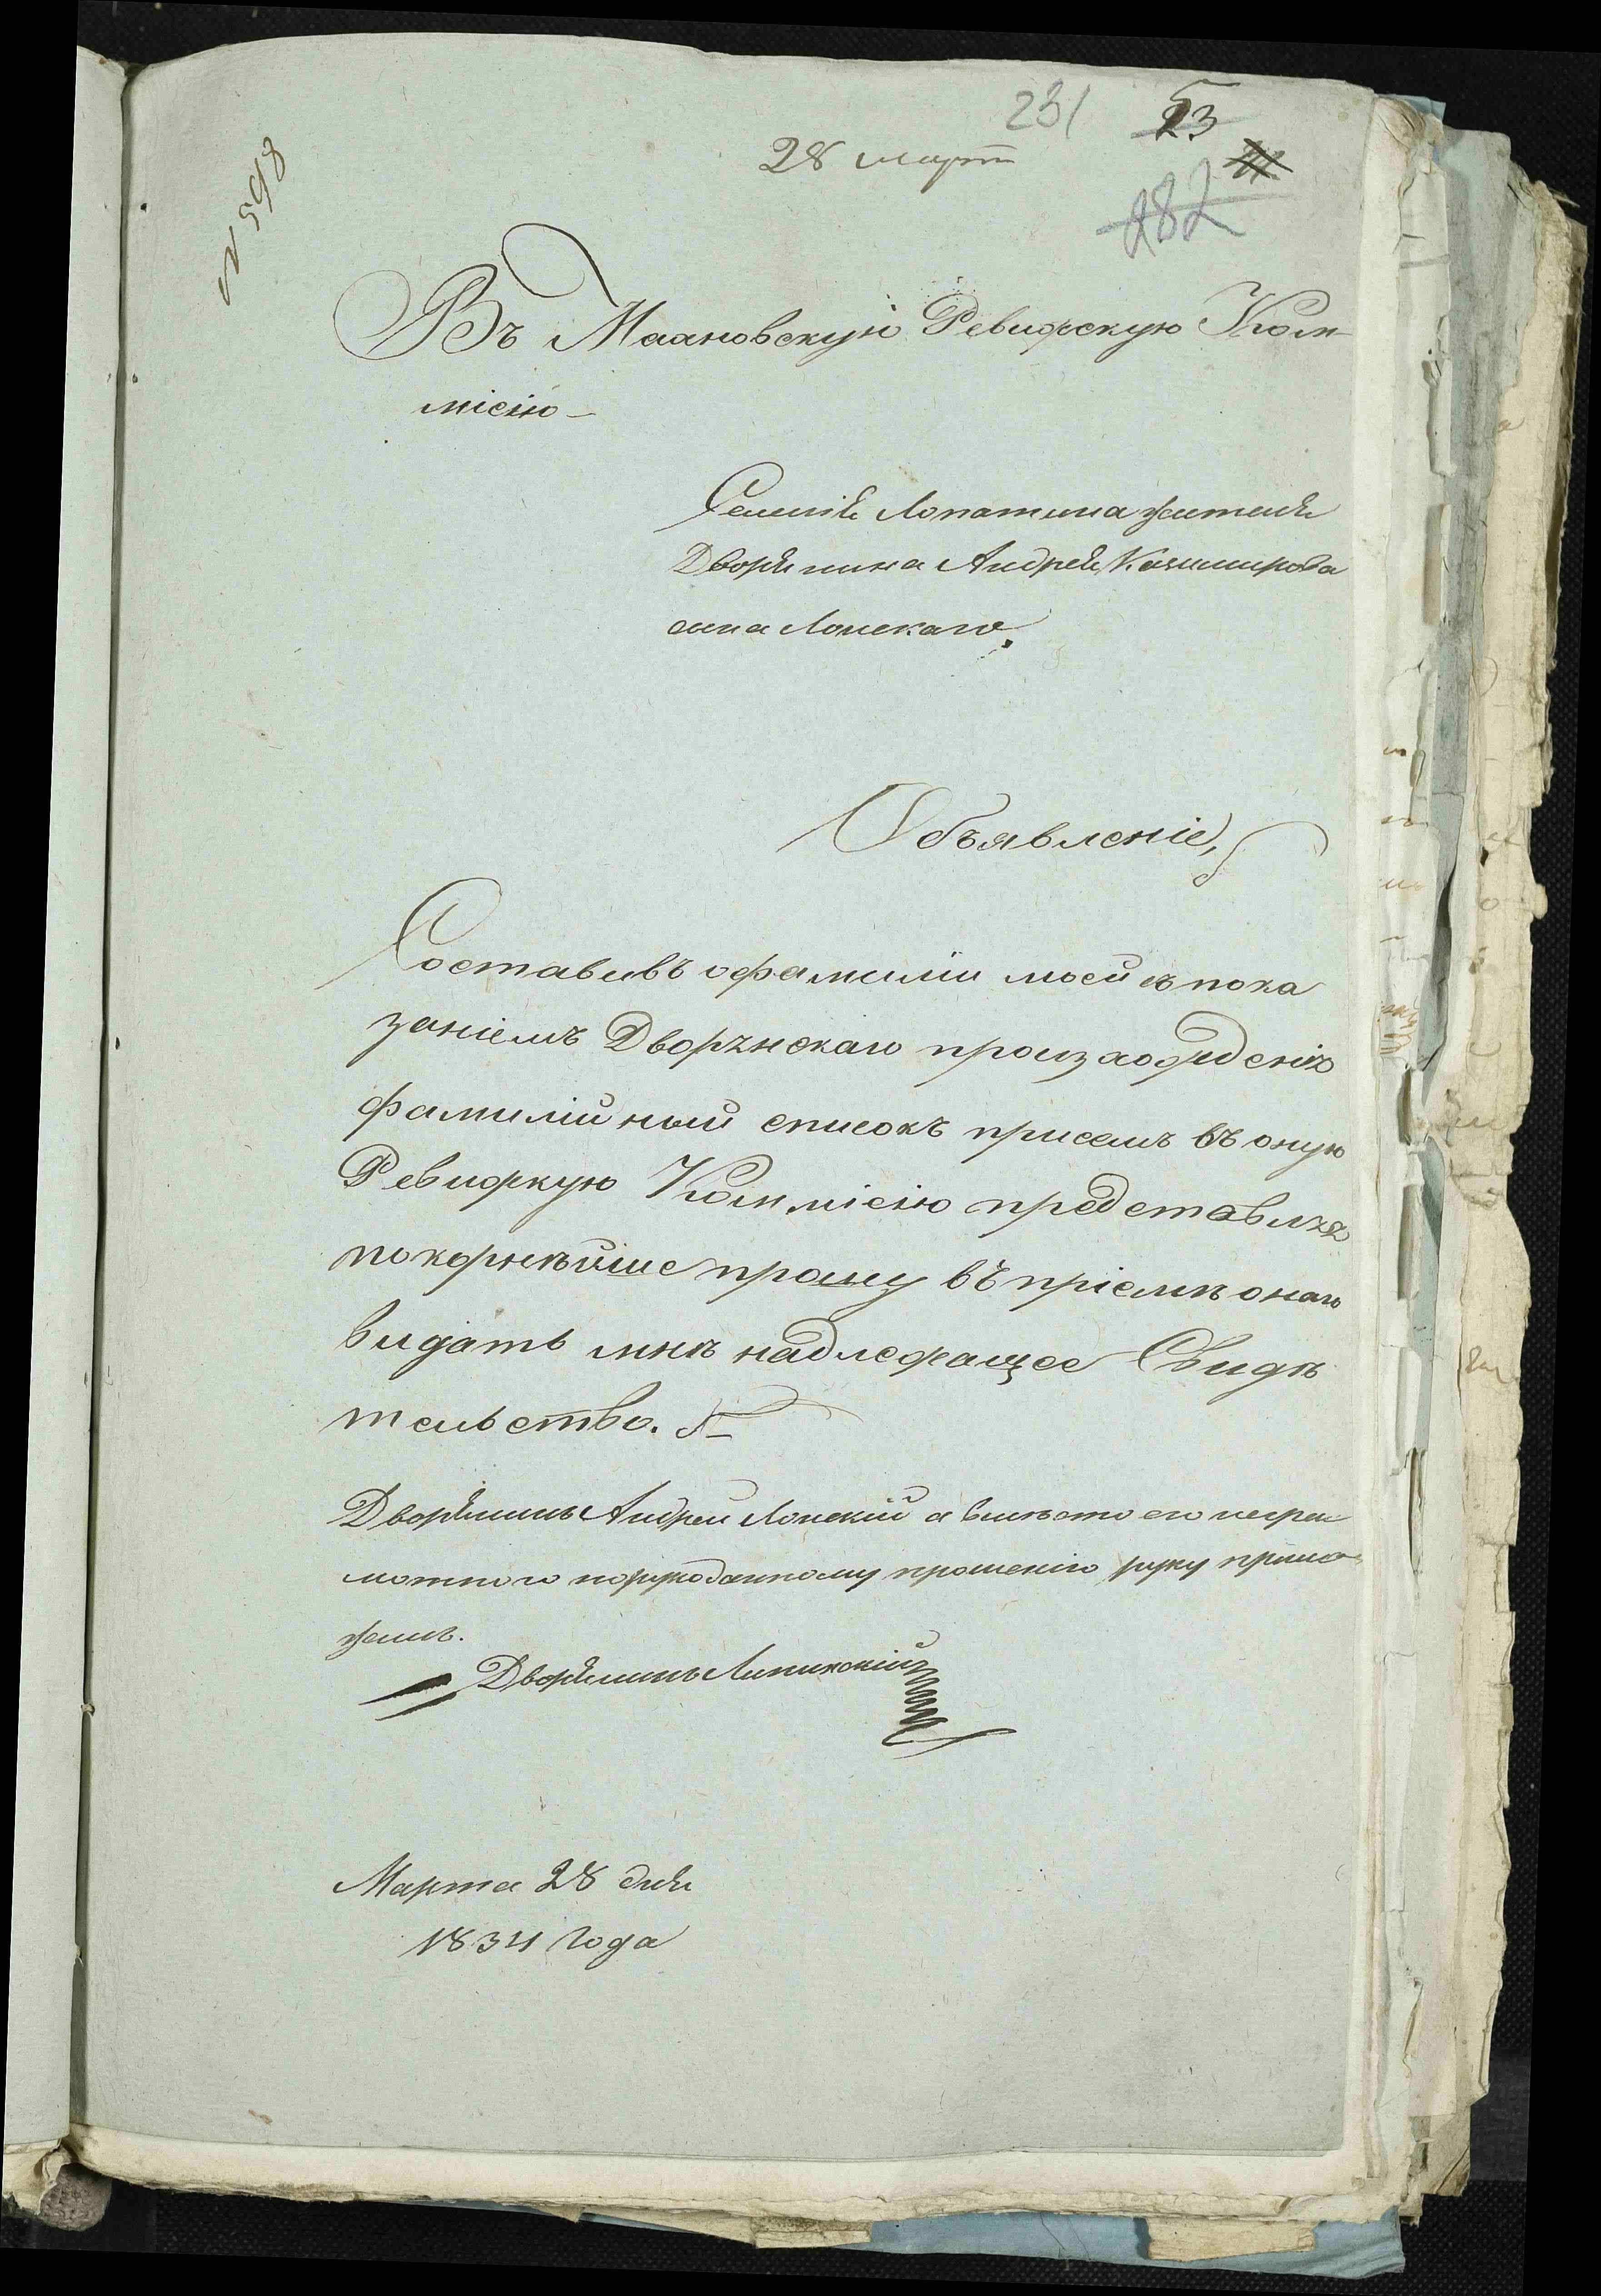 231 53
28 март
282
N 598
Въ Маяновскую Ревизскую Ком
місію
Селенія Лопатина жителя
Дворянина Андрея Казимирова
сына Лонскаго,
Объявленіе,
Составивъ о фамиліи моей съ пока
заніемъ Дворянскаго произхожденія
фамилійный списокъ присемъ въ оную
Ревизкую Коммісію представляя
покорнѣйше прошу въ пріемѣ онаго
видать мнѣ надлежащее Свидѣ
тельство.
Дворянинъ Андрей Лонскій а вмѣсто его неграм
мотного по рукоданному прошенію руку прило
жилъ.
Дворянинъ Липинскій
Марта 28 дня
1834 года